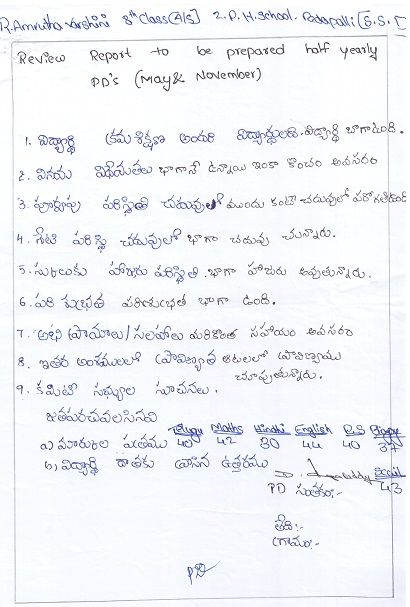 R.Amrutha varshini 8th Class (A/S) Z.P.H.School. Pedapalli
Review Report to be prepared half yearly
PD's (May & November)
1. విద్యార్థి క్రమ శిక్షణ అందరి విద్యార్థులతో. విద్యార్థి బాగా ఉంది.
2. వినయ విధేయతలు భాగానే ఉన్నాయి ఇంకా కొంచం అవసరం
3. పూర్వపు పరిస్థితి చదువులో ముందు కంటే చదువులో
4. నేటి పరిస్థి చదువులో భాగా చదువు చున్నారు.
5. స్కూలుకు హాజరు పరిస్థితి. భాగా హాజరు అవుతున్నారు.
6. పరిశుభ్రత పరిశుభ్రత భాగా ఉంది.
7. అభిప్రాయాలు/సలహాలు మరికొంత సహాయం అవసరం
8. ఇతర అంశములలో ప్రావిణ్యత ఆటలలో ప్రావిణ్యము
చూపుతున్నారు.
9. కమిటి సభ్యుల సూచనలు.
జతపరచవలసినవి
Telugu Maths Hindhi English P.S Biology
a) మార్కుల పత్రము 40 42 30 44 40 37
b) విద్యార్థి దాతకు వ్రాసిన ఉత్తరము
Social
PD సంతకం:- 43
తేది:-
గ్రామం:-
PD